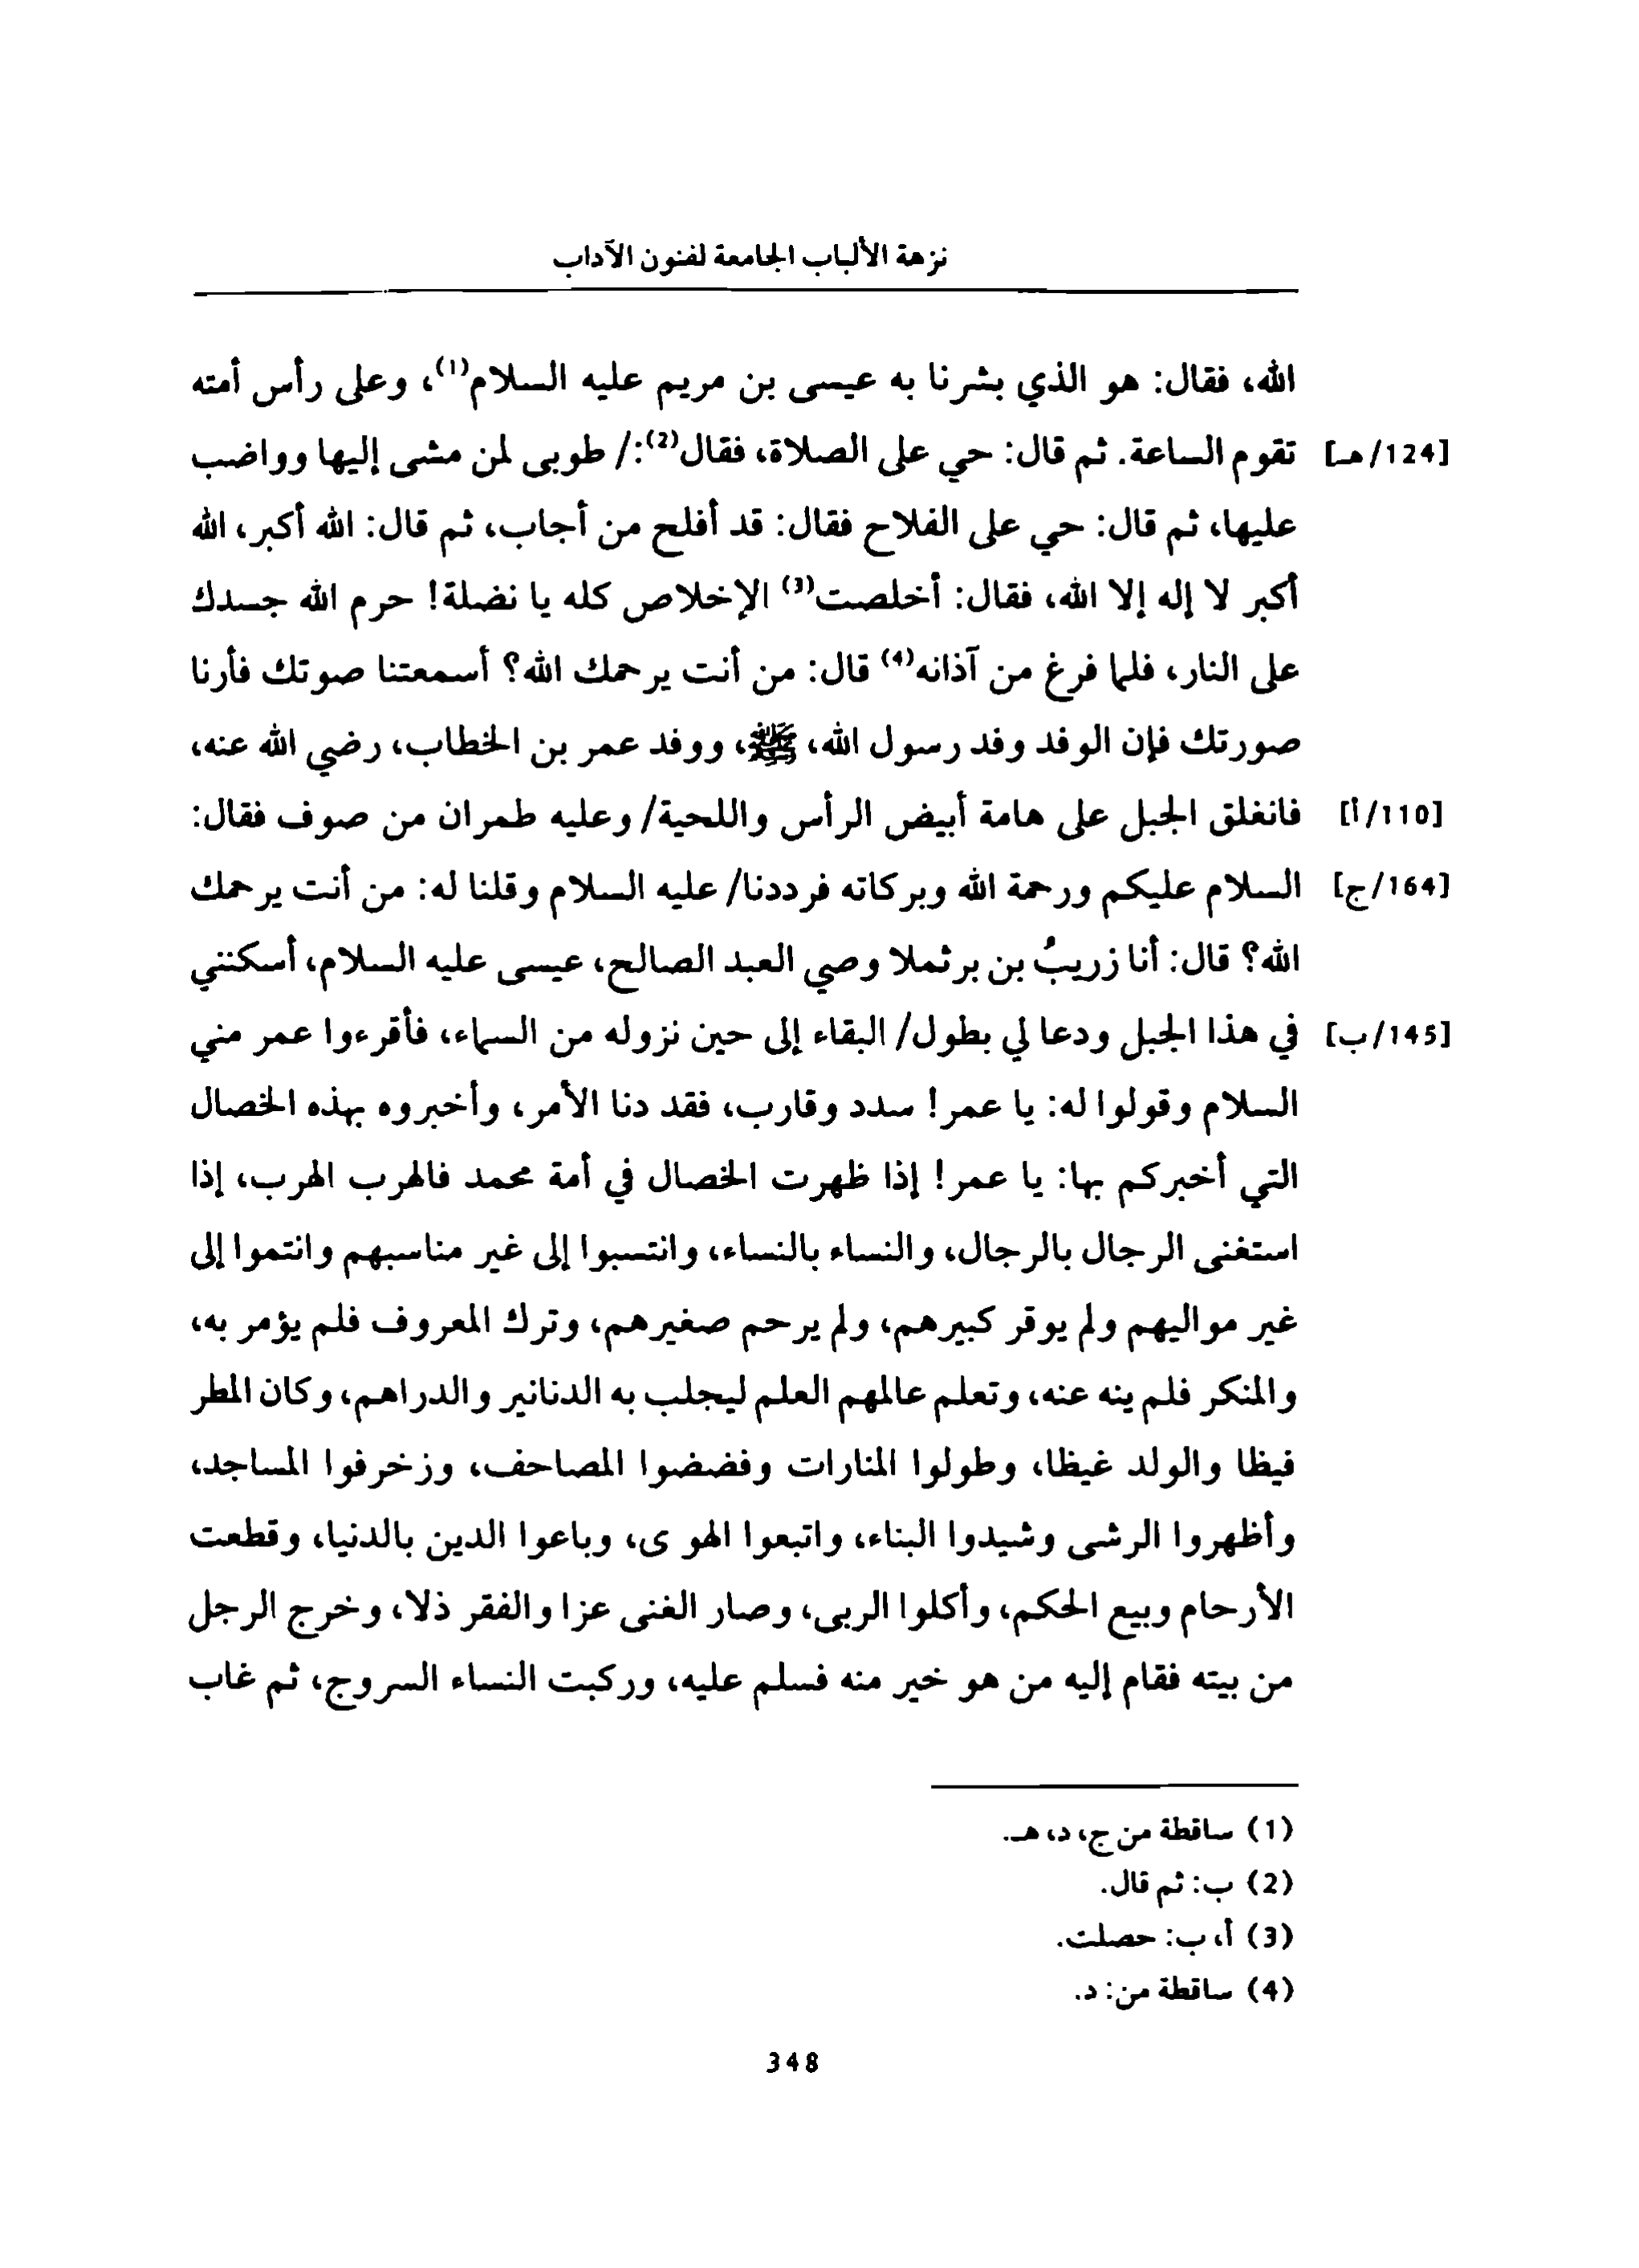 نزهة الألباب الجامعة لفنون الآداب
الله، فقال: هو الذي بشرنا به عيسى بن مريم عليه السلام(1)، وعلى رأس أمته
[124/هـ] تقوم الساعة. ثم قال: حي على الصلاة، فقال(2):/ طوبى لمن مشى إليها وواضب
عليها، ثم قال: حي على الفلاح فقال: قد أفلح من أجاب، ثم قال: الله أكبر، الله
أكبر لا إله إلا الله، فقال: أخلصت(3) الإخلاص كله يا نضلة! حرم الله جسدك
على النار، فلما فرغ من آذانه(4) قال: من أنت يرحمك الله؟ أسمعتنا صوتك فأرنا
صورتك فإن الوفد وفد رسول الله، ﷺ، ووفد عمر بن الخطاب، رضي الله عنه،
[110/أ] فانغلق الجبل على هامة أبيض الرأس واللحية/ وعليه طمران من صوف فقال:
[164/ج] السلام عليكم ورحمة الله وبركاته فرددنا/ عليه السلام وقلنا له: من أنت يرحمك
الله؟ قال: أنا زريبُ بن برثملا وصي العبد الصالح، عيسى عليه السلام، أسكنني
[145/ب] في هذا الجبل ودعا لي بطول/ البقاء إلى حين نزوله من السماء، فأقرءوا عمر مني
السلام وقولوا له: يا عمر! سدد وقارب، فقد دنا الأمر، وأخبروه بهذه الخصال
التي أخبركم بها: يا عمر! إذا ظهرت الخصال في أمة محمد فالهرب الهرب، إذا
استغنى الرجال بالرجال، والنساء بالنساء، وانتسبوا إلى غير مناسبهم وانتموا إلى
غير مواليهم ولم يوقر كبيرهم، ولم يرحم صغيرهم، وترك المعروف فلم يؤمر به،
والمنكر فلم ينه عنه، وتعلم عالمهم العلم ليجلب به الدنانير والدراهم، وكان المطر
قيظا والولد غيظا، وطولوا المنارات وفضضوا المصاحف، وزخرفوا المساجد،
وأظهروا الرشى وشيدوا البناء، واتبعوا الهوى، وباعوا الدين بالدنيا، وقطعت
الأرحام وبيع الحكم، وأكلوا الربى، وصار الغنى عزا والفقر ذلا، وخرج الرجل
من بيته فقام إليه من هو خير منه فسلم عليه، وركبت النساء السروج، ثم غاب
(1) ساقطة من ج، د، هـ.
(2) ب: ثم قال.
(3) أ، ب: حصلت.
(4) ساقطة من: د.
348